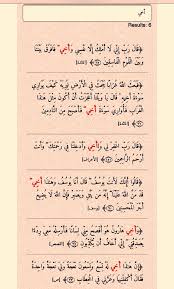 أخي
Results: 6
﴿قَالَ رَبِّ إِنِّي لَا أَمْلِكُ إِلَّا نَفْسِي وَأَخِي فَافْرُقْ بَيْنَنَا
وَبَيْنَ الْقَوْمِ الْفَاسِقِينَ﴾ [المائدة]
﴿فَبَعَثَ اللَّهُ غُرَابًا يَبْحَثُ فِي الْأَرْضِ لِيُرِيَهُ كَيْفَ يُوَارِي
سَوْءَةَ أَخِيهِ قَالَ يَا وَيْلَتَا أَعَجَزْتُ أَنْ أَكُونَ مِثْلَ هَٰذَا
الْغُرَابِ فَأُوَارِيَ سَوْءَةَ أَخِي فَأَصْبَحَ مِنَ النَّادِمِينَ
﴾ [المائدة]
﴿قَالَ رَبِّ اغْفِرْ لِي وَلِأَخِي وَأَدْخِلْنَا فِي رَحْمَتِكَ وَأَنْتَ
أَرْحَمُ الرَّاحِمِينَ﴾ [الأعراف]
﴿قَالُوا أَإِنَّكَ لَأَنْتَ يُوسُفُ قَالَ أَنَا يُوسُفُ وَهَٰذَا أَخِي قَدْ
مَنَّ اللَّهُ عَلَيْنَا إِنَّهُ مَنْ يَتَّقِ وَيَصْبِرْ فَإِنَّ اللَّهَ لَا يُضِيعُ
أَجْرَ الْمُحْسِنِينَ﴾ [يوسف]
﴿وَأَخِي هَارُونُ هُوَ أَفْصَحُ مِنِّي لِسَانًا فَأَرْسِلْهُ مَعِيَ رِدْءًا
يُصَدِّقُنِي إِنِّي أَخَافُ أَنْ يُكَذِّبُونِ﴾ [القصص]
﴿إِنَّ هَٰذَا أَخِي لَهُ تِسْعٌ وَتِسْعُونَ نَعْجَةً وَلِيَ نَعْجَةٌ وَاحِدَةٌ
فَقَالَ أَكْفِلْنِيهَا وَعَزَّنِي فِي الْخِطَابِ﴾ [ص]